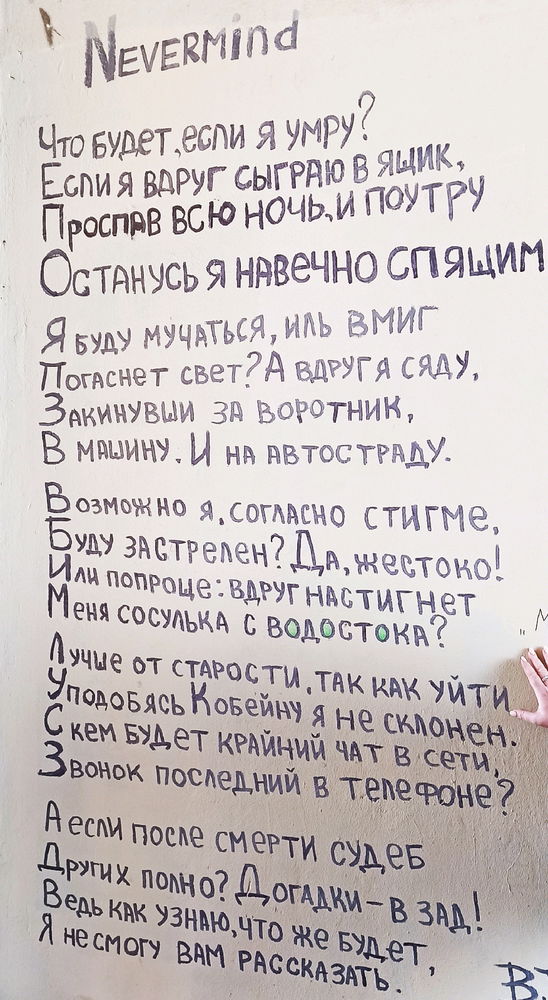 Nevermind
Что будет, если я умру?
Если я вдруг сыграю в ящик,
Проспав всю ночь, и поутру
Останусь я навечно спящим
Я буду мучаться, иль вмиг
Погаснет свет? А вдруг я сяду,
Закинувши за воротник,
В машину. И на автостраду.
Возможно я, согласно стигме,
Буду застрелен? Да, жестоко!
Или попроще: вдруг настигнет
Меня сосулька с водостока?
Лучше от старости, так как уйти
Уподобясь Кобейну я не склонен.
С кем будет крайний чат в сети,
Звонок последний в телефоне?
А если после смерти судеб
Других полно? Догадки – в зад!
Ведь как узнаю, что же будет,
Я не смогу вам рассказать.